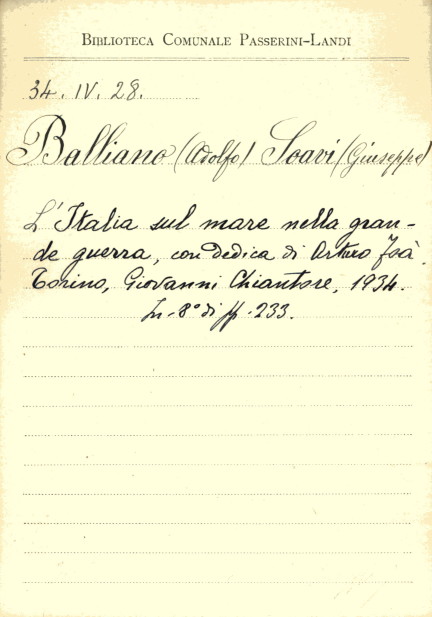 BIBLIOTECA COMUNALE PASSERINI-LANDI
34. IV. 28.
Balliano (Adolfo) Soavi (Giuseppe)
L'Italia sul mare nella gran-
de guerra, con dedica di Arturo Foà.
Torino, Giovanni Chiantore, 1934.
In-8° di pp. 233.